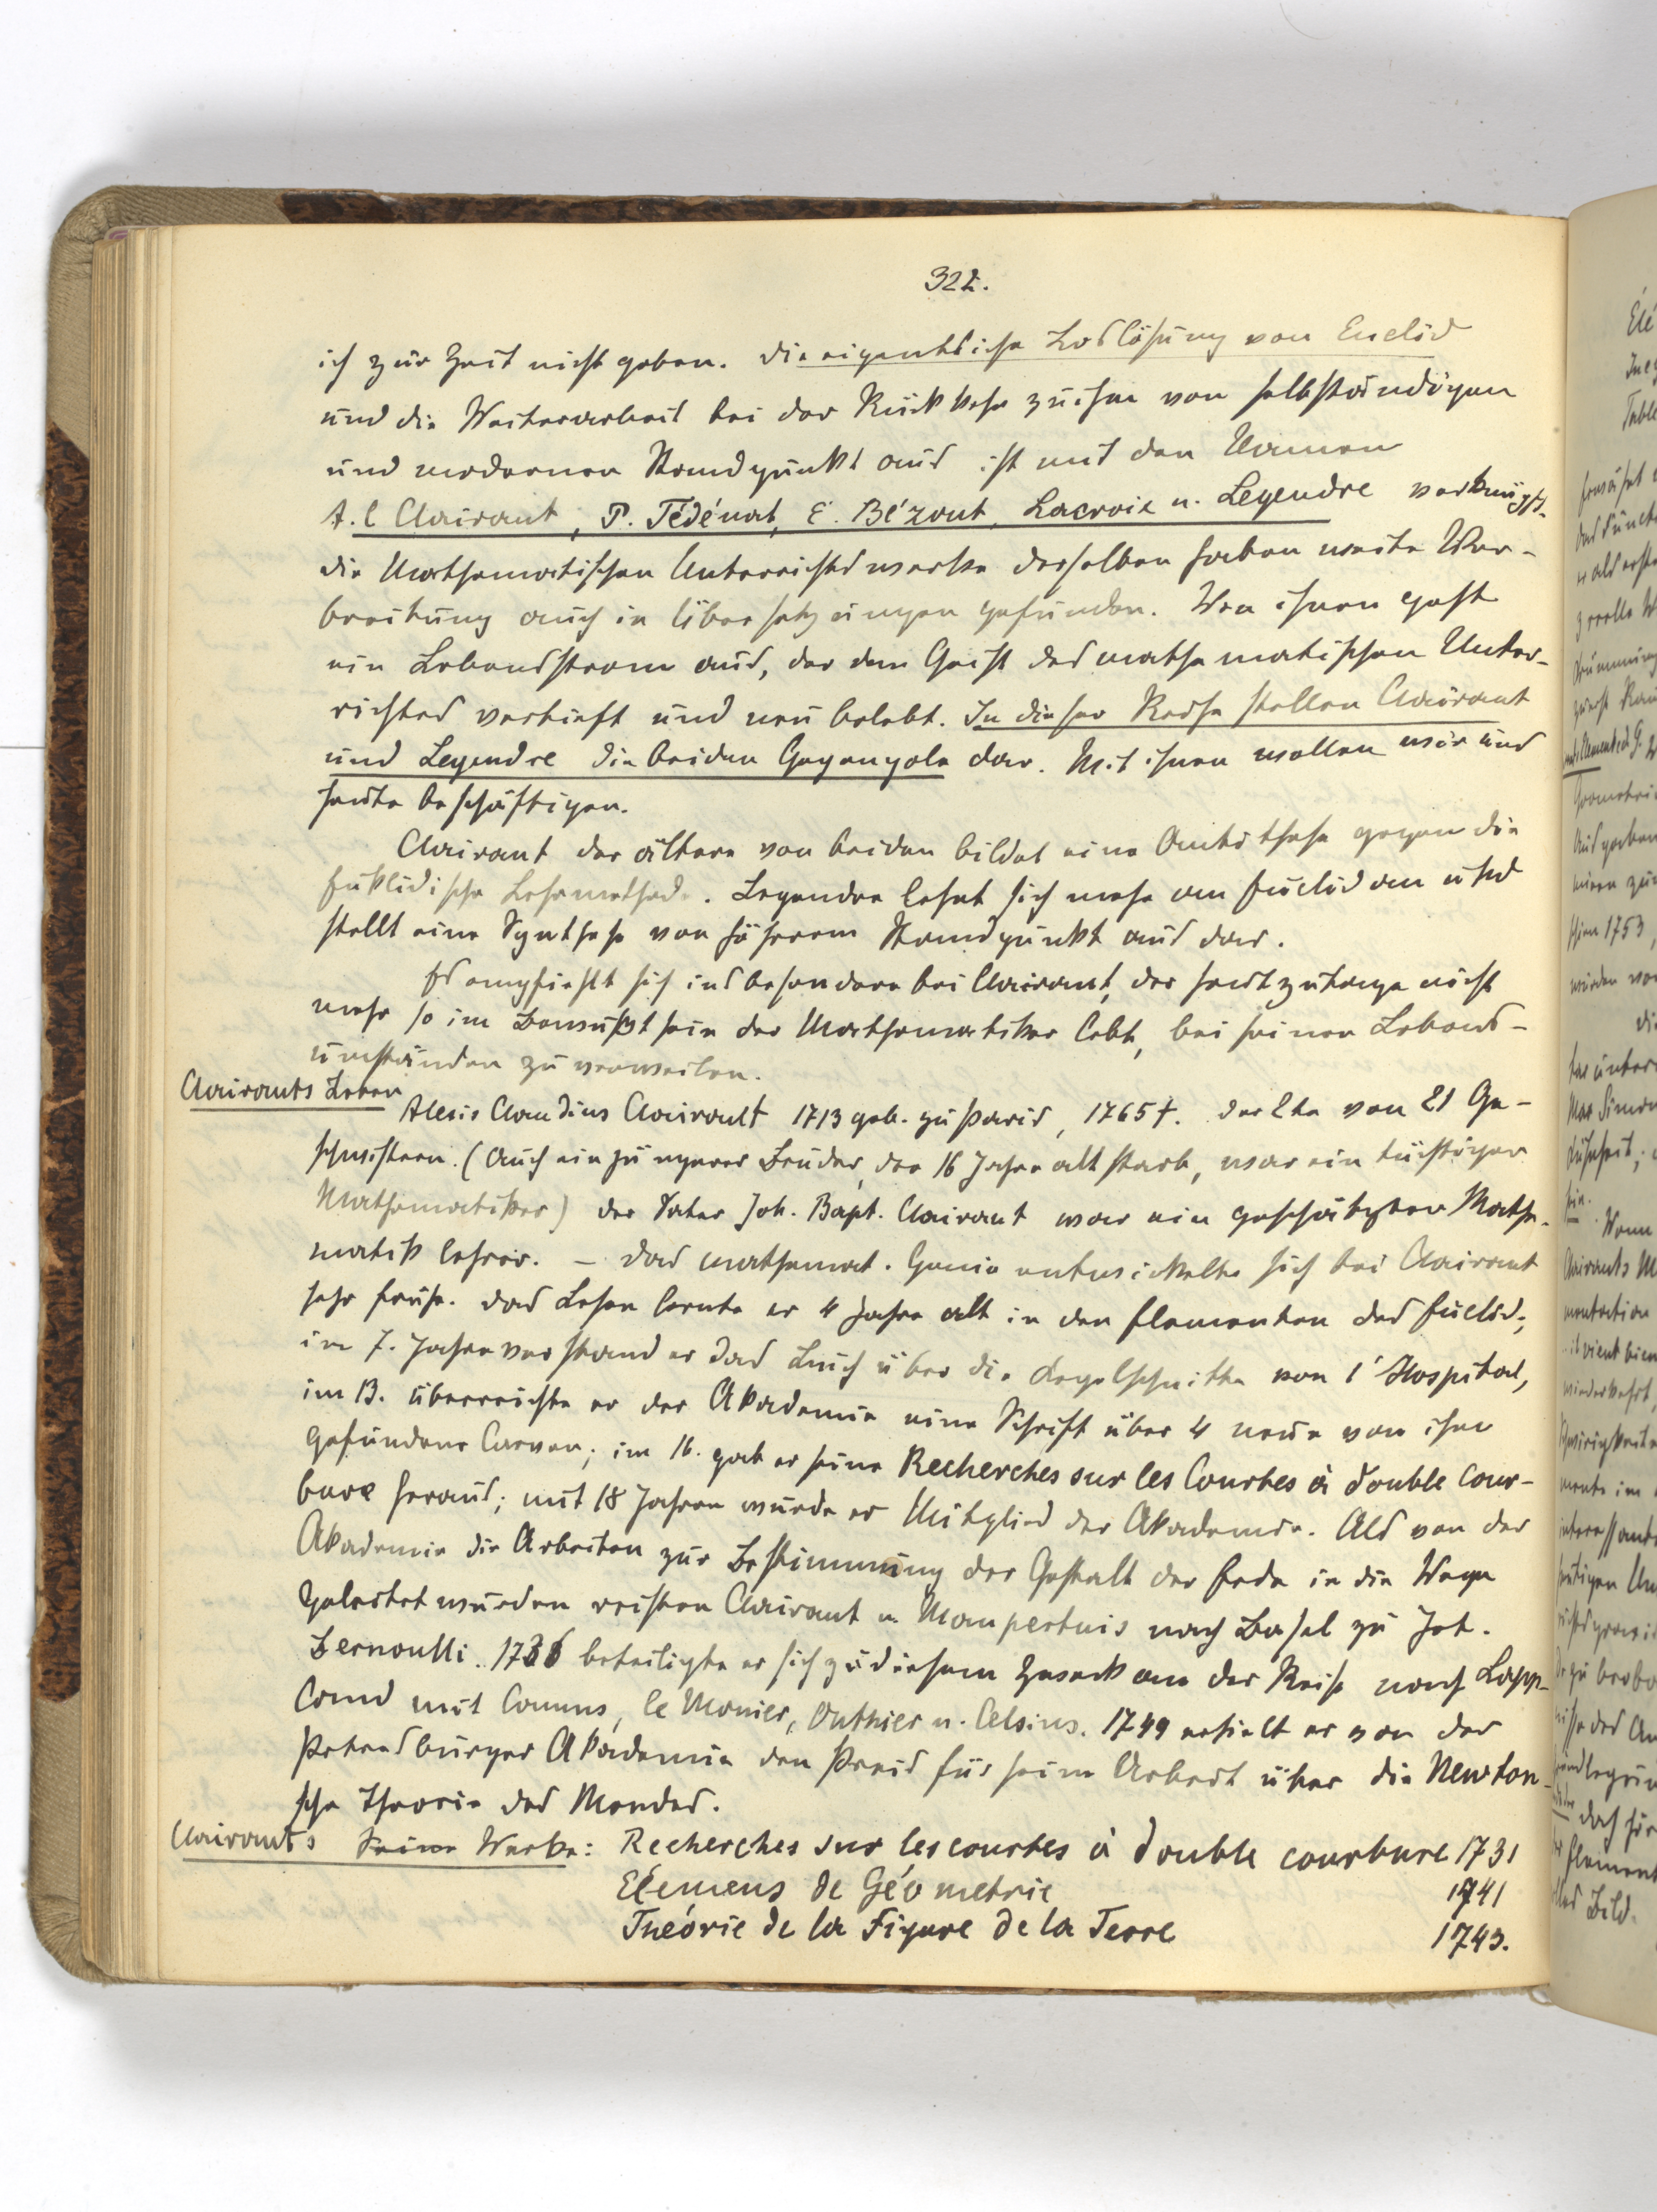 322.
ich zur Zeit nicht geben. Die eigentliche Loslösung von Euclid
und die Weiterarbeit bei der Rückkehr zu ihm von selbständigem
und modernen Standpunkt aus ist mit den Namen
A. C Clairaut, P. Tédénat, E. Bézout, Lacroix u. Legendre verknüpft.
Die Mathematischen Unterrichtswerke derselben haben weite Ver-
breitung auch in Übersetzungen gefunden. Von ihnen geht
ein Lebensstrom aus, der den Geist des mathematischen Unter-
richtes vertieft und neu belebt. In dieser Reihe stellen Clairaut
und Legendre die beiden Gegenpole dar. Mit ihnen wollen wir uns
heute beschäftigen.
Clairaut der ältere von beiden bildet eine Antithese gegen die
Euklidische Lehrmethode. Legendre lehnt sich mehr an Euclid an und
stellt eine Synthese von höherem Standpunkt aus dar.
Es empfiehlt sich insbesondere bei Clairaut, der heutzutage nicht
mehr so im Bewußtsein der Mathematiker lebt, bei seinen Lebens-
umständen zu verweilen.
Clairauts Leben
Alexis Claudius Clairault 1713 geb. zu Paris, 1765 †. der 2te von 21 Ge-
schwistern. (Auch ein jüngerer Bruder, der 16 Jahre alt starb, war ein tüchtiger
Mathematiker) Der Vater Joh. Bapt. Clairaut war ein geschätzter Mathe-
matiklehrer. – Das mathemat. Genie entwickelte sich bei Clairaut
sehr frühe. Das Lesen lernte er 4 Jahre alt in den Elementen des Euclid;
im 7. Jahre verstand er das Buch über die Kegelschnitte von l'Hospital,
im 13. überreichte er der Akademie eine Schrift über 4 neue von ihm
gefundene Curven; im 16. gab er seine Recherches sur les Courbes à double cour-
bure heraus; mit 18 Jahren wurde er Mitglied der Akademie. Als von der
Akademie die Arbeiten zur Bestimmung der Gestalt der Erde in die Wege
geleitet wurden reisten Clairaut u Maupertuis nach Basel zu Joh.
Bernoulli. 1736 beteiligte er sich zu diesem Zweck an der Reise nach Lapp-
land mit Camus, le Monier, Outhier u. Celsius. 1749 erhielt er von der
Petersburger Akademie den Preis für seine Arbeit über die Newton-
sche Theorie des Mondes.
Clairauts Seine Werke: Recherches sur les courbes à double courbure 1731
Elémens de Géometrie 1741
Théorie de la Figure de la Terre 1743.